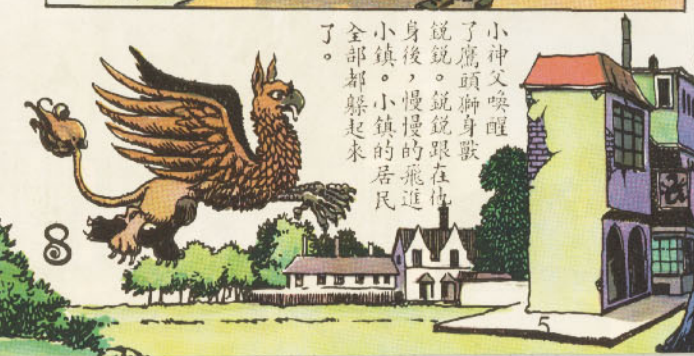 小神父喚醒
了鷹頭獅身獸
銳銳。銳銳跟在他
身後，慢慢的飛進
小鎮。小鎮的居民
全部都躲起來
了。
8
5